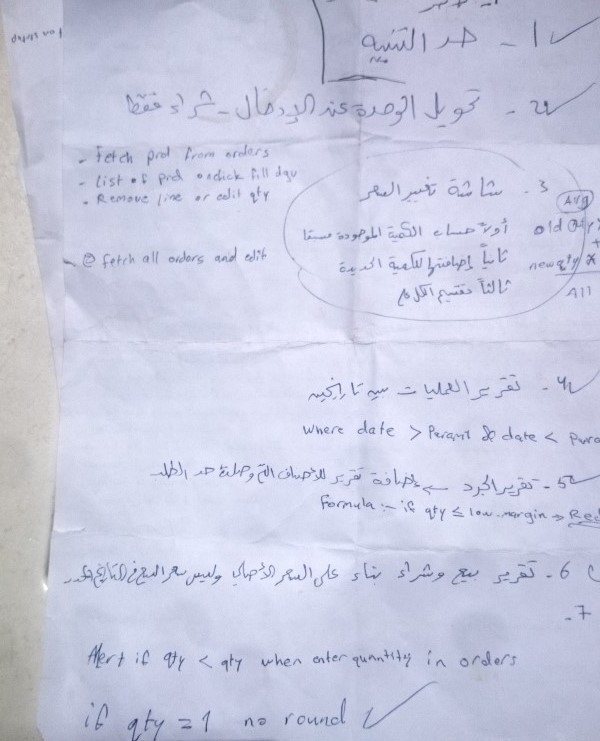 1 - حد التنبيه
2 - تحويل الوحدة عند الإدخال - شراء فقط
- Fetch prd from orders
- List of prd onclick fill dgv
- Remove line or edit qty
@ fetch all orders and edit
3 - شاشة تغيير السعر
أولاً حساب الكمية الموجودة مسبقا
ثانياً إضافتها للكمية الجديدة
ثالثاً تقسيم الكل
Avg
old Qty *
+
new qty *
All
4 - تقرير العمليات بين تاريخين
where date > Param1 & date < Para
5 - تقرير الجرد إضافة تقرير للأصناف التي وصلت حد الطلب
Formula :- if qty ≤ low-margin → Red
6 - تقرير بيع وشراء بناء على السعر الأصلي وليس سعر البيع في التاريخ
7 -
Alert if qty < qty when enter quantity in orders
if qty = 1 no round